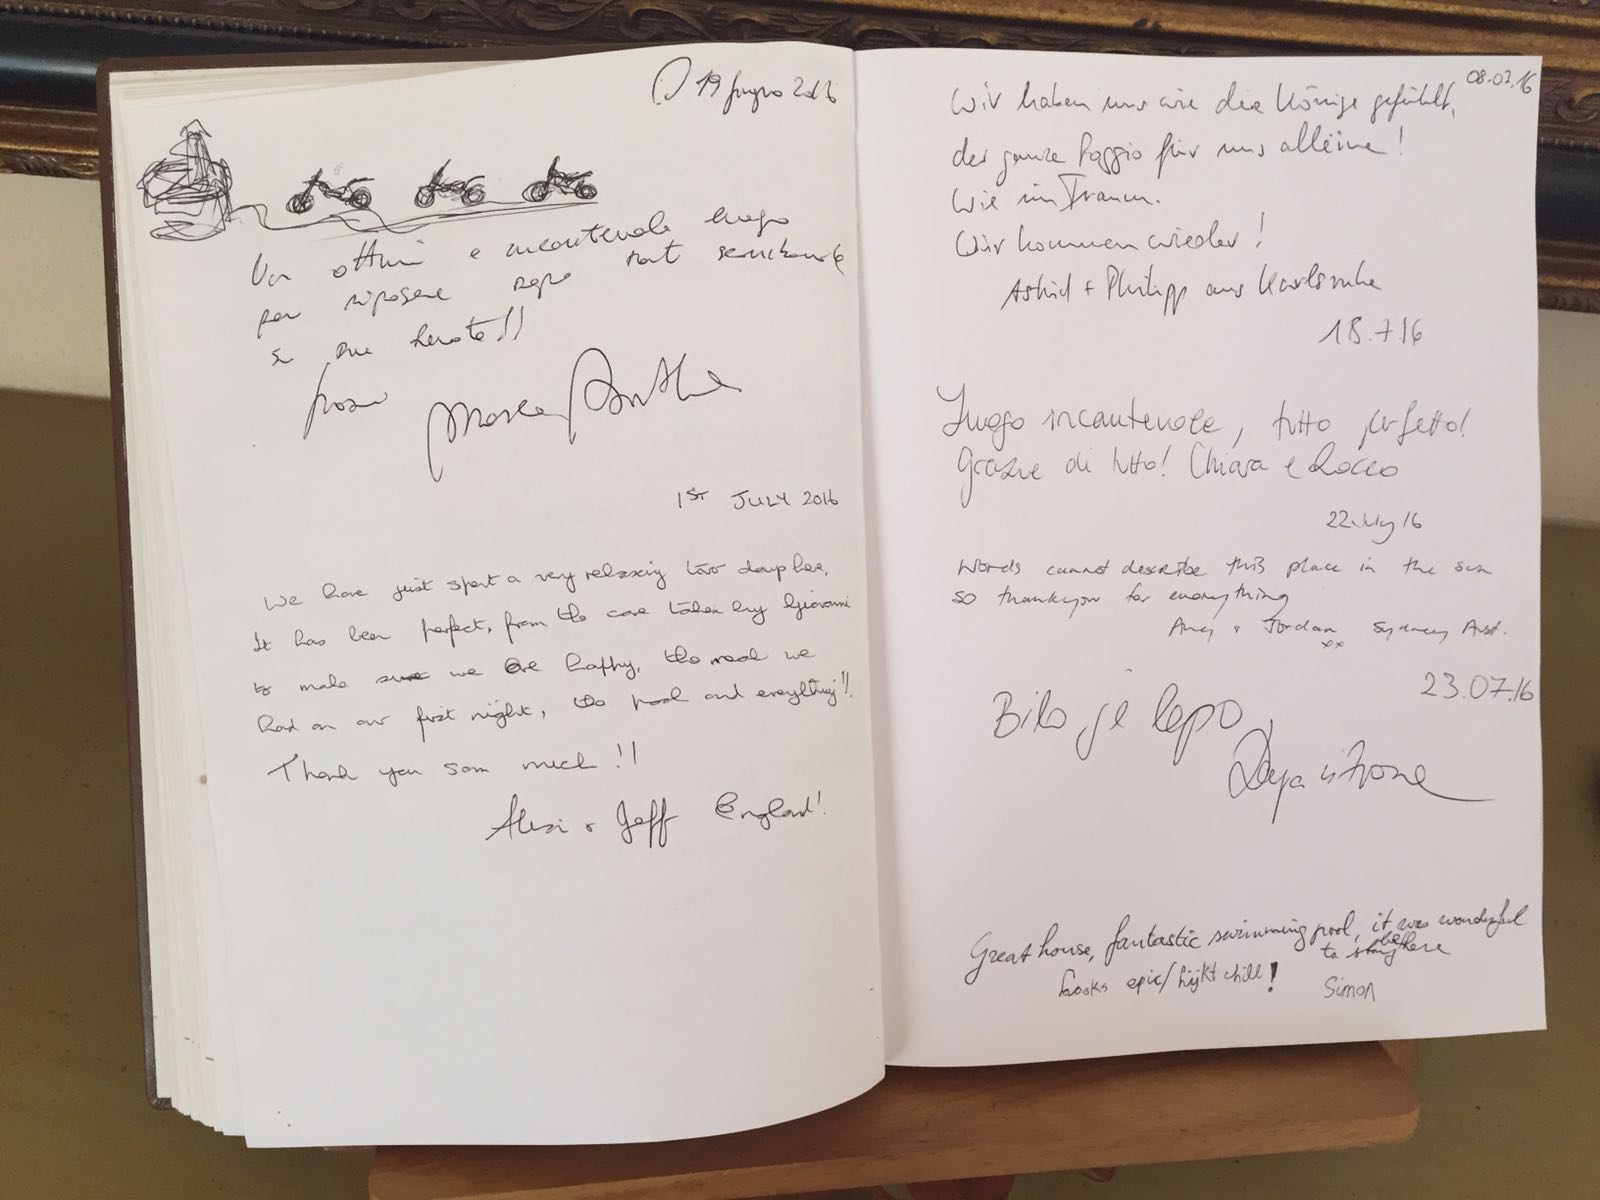 19 giugno 2016
Un ottimo e incantevole luogo
per riposare dopo
1ST JULY 2016
We have just spent a very relaxing two days here,
It has been perfect, from the care taken by Giovanni
to make sure we are happy, the meal we
had on our first night, the pool and everything!!
Thank you som much!!
& Jeff England!
08.07.16
Wir haben uns wie die Könige gefühlt,
der ganze Poggio für uns alleine!
Wie im Traum.
Wir kommen wieder!
Astrid + Philipp aus Karlsruhe
18.7.16
Luogo incantevole, tutto perfetto!
Grazie di tutto! Chiara e Rocco
22 July 16
Words cannot describe this place in the sun
so thankyou for everything
Amy & Jordan Sydney Aust.
xx
23.07.16
Bilo je lepo
Great house, fantastic swimming pool, it was wonderful
to be here
looks epic/lijkt chill!
Simon